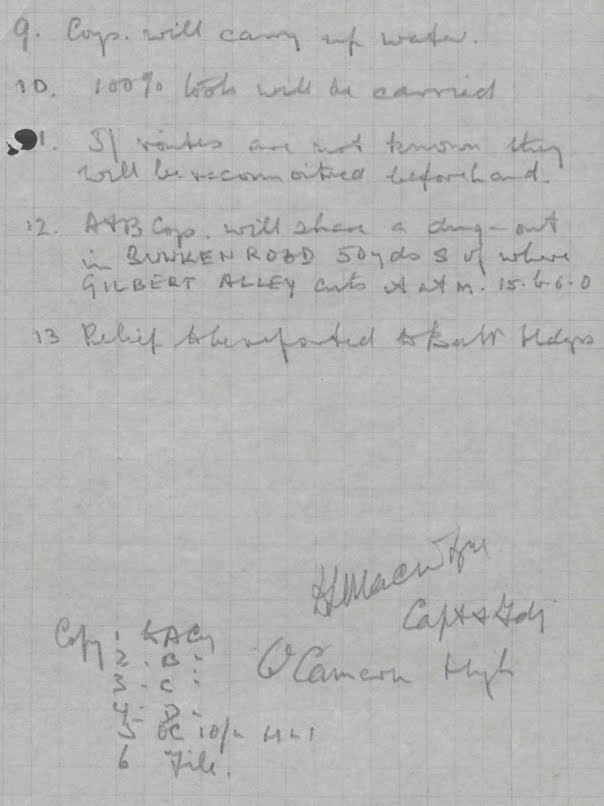 9. Coys. will carry up water.
10. 100% tools will be carried
11. If routes are not known they
will be reconnoitred beforehand.
12. A & B Coys. will share a dug-out
in BUNKEN ROAD 50 yds S of where
GILBERT ALLEY cuts it at M.15.b.6.0
13 Relief to be reported to Batt Hdqrs
Capt & Adj
Cameron High
Copy 1 to A Coy
2 - B "
3 - C "
4 - D "
5 OC 10/ HLI
6 File.